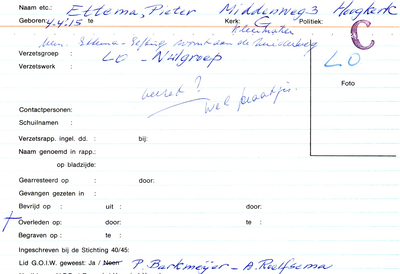 Naam etc.: Ettema, Pieter Middenweg 3 Hoogkerk
Geboren: 4.4.'15 te Kerk: G Politiek: C
Mevr. Ettema - woont aan de
Verzetsgroep : LO - Nijlgroep LO
Verzetswerk :
verzet? Foto
wel praatjes.
Contactpersonen:
Schuilnamen :
Verzetsrapp. ingel. dd. : bij:
Naam genoemd in rapp.:
op bladzijde:
Gearresteerd op : door:
Gevangen gezeten in :
Bevrijd op : uit : door:
† Overleden op: door: te :
Begraven op : te :
Ingeschreven bij de Stichting 40/45:
Lid G.O.I.W. geweest: Ja / Neen P. Barkmeijer - A. Roelfsema